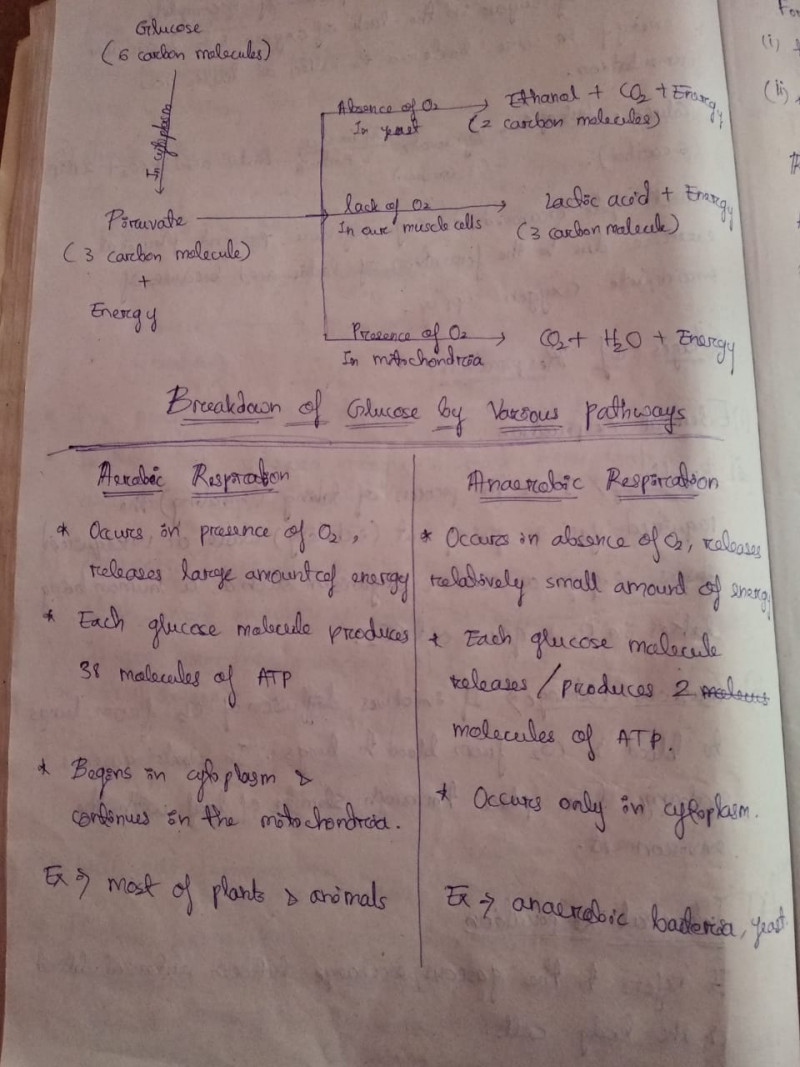 Glucose
(6 carbon molecules)
In cytoplasm
Absence of O2
In yeast
Ethanol + CO2 + Energy
(2 carbon molecules)
Piruvate
(3 carbon molecule)
+
Energy
lack of O2
In our muscle cells
Lactic acid + Energy
(3 carbon molecule)
Presence of O2
In mitochondria
CO2 + H2O + Energy
Breakdown of Glucose by Various pathways
Aerobic Respiration
* Occurs in presence of O2,
releases large amount of energy
* Each glucose molecule produces
38 molecules of ATP
* Begins in cytoplasm &
continues in the mitochondria.
Ex → most of plants & animals
Anaerobic Respiration
* Occurs in absence of O2, releases
relatively small amount of energy
* Each glucose molecule
releases / produces 2
molecules of ATP.
* Occurs only in cytoplasm.
Ex → anaerobic bacteria, yeast
(i)
(ii)